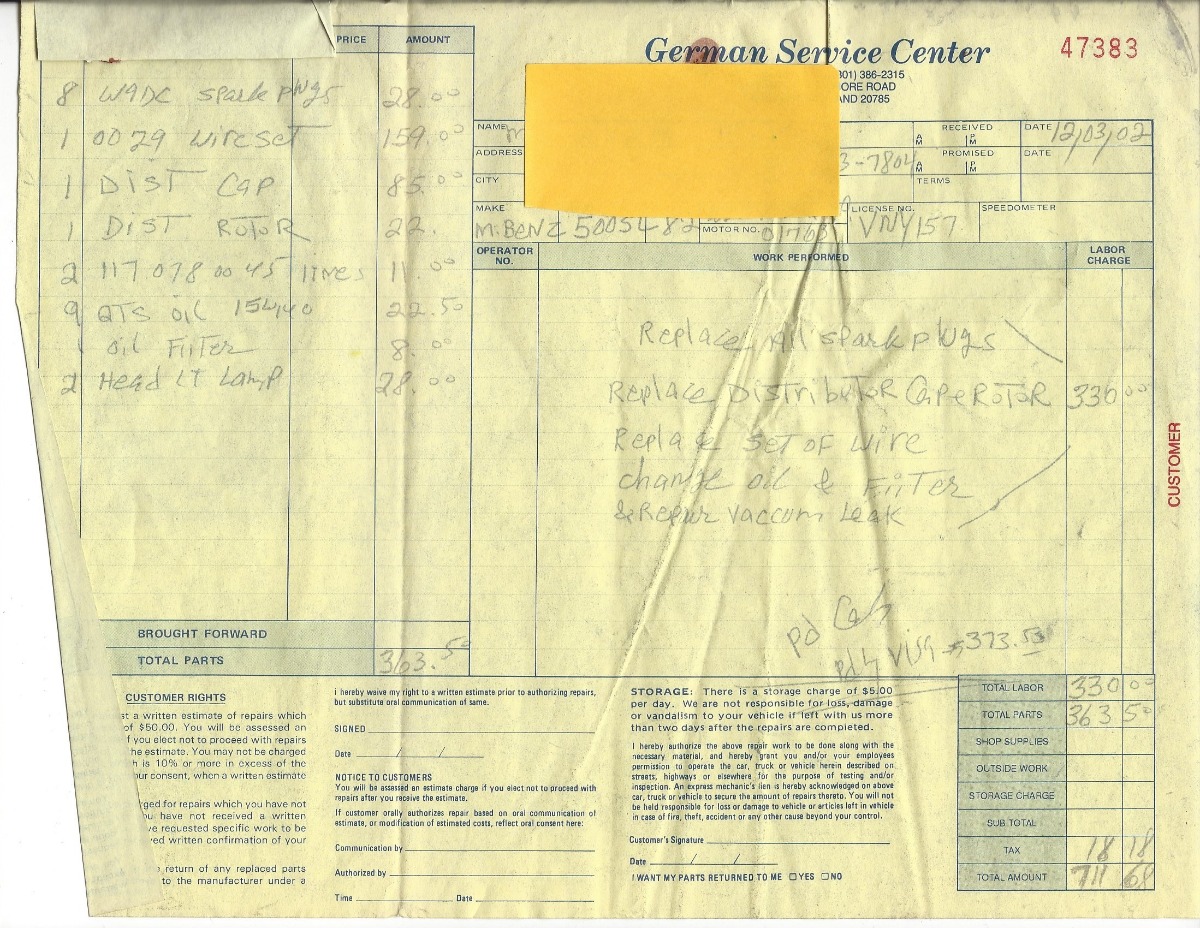 PRICE AMOUNT
8 W9DC Spark plugs 28.00
1 0029 wire set 159.00
1 DIST Cap 85.00
1 DIST ROTOR 22.
2 117 078 00 45 lines 11.00
9 QTS OIL 15W40 22.50
oil FiiTer 8.00
2 Head LT Lamp 28.00
BROUGHT FORWARD
TOTAL PARTS 363.50
German Service Center 47383
301) 386-2315
ORE ROAD
AND 20785
NAME M RECEIVED DATE 12,03,02
AM PM
ADDRESS 3-7804 PROMISED DATE
AM PM
CITY TERMS
MAKE LICENSE NO. SPEEDOMETER
M.BENZ 500SL 82 MOTOR NO. VNY157
OPERATOR NO. WORK PERFORMED LABOR CHARGE
Replace All spark plugs
Replace Distributor Cap e ROTOR 330 00
Replace SET OF wire
change oil & FiiTer
& Repur Vaccum Leak
pd
pd by Visa \$373.50
CUSTOMER
CUSTOMER RIGHTS
st a written estimate of repairs which
of $50.00. You will be assessed an
f you elect not to proceed with repairs
he estimate. You may not be charged
h is 10% or more in excess of the
ur consent, when a written estimate
ged for repairs which you have not
u have not received a written
ve requested specific work to be
ed written confirmation of your
return of any replaced parts
to the manufacturer under a
I hereby waive my right to a written estimate prior to authorizing repairs,
but substitute oral communication of same.
SIGNED
Date / /
NOTICE TO CUSTOMERS
You will be assessed an estimate charge if you elect not to proceed with
repairs after you receive the estimate.
If customer orally authorizes repair based on oral communication of
estimate, or modification of estimated costs, reflect oral consent here:
Communication by
Authorized by
Time Date
STORAGE: There is a storage charge of $5.00
per day. We are not responsible for loss, damage
or vandalism to your vehicle if left with us more
than two days after the repairs are completed.
I hereby authorize the above repair work to be done along with the
necessary material, and hereby grant you and/or your employees
permission to operate the car, truck or vehicle herein described on
streets, highways or elsewhere for the purpose of testing and/or
inspection. An express mechanic's lien is hereby acknowledged on above
car, truck or vehicle to secure the amount of repairs thereto. You will not
be held responsible for loss or damage to vehicle or articles left in vehicle
in case of fire, theft, accident or any other cause beyond your control.
Customer's Signature
Date / /
I WANT MY PARTS RETURNED TO ME YES NO
TOTAL LABOR 330 00
TOTAL PARTS 363 50
SHOP SUPPLIES
OUTSIDE WORK
STORAGE CHARGE
SUB TOTAL
TAX 18 18
TOTAL AMOUNT 711 68